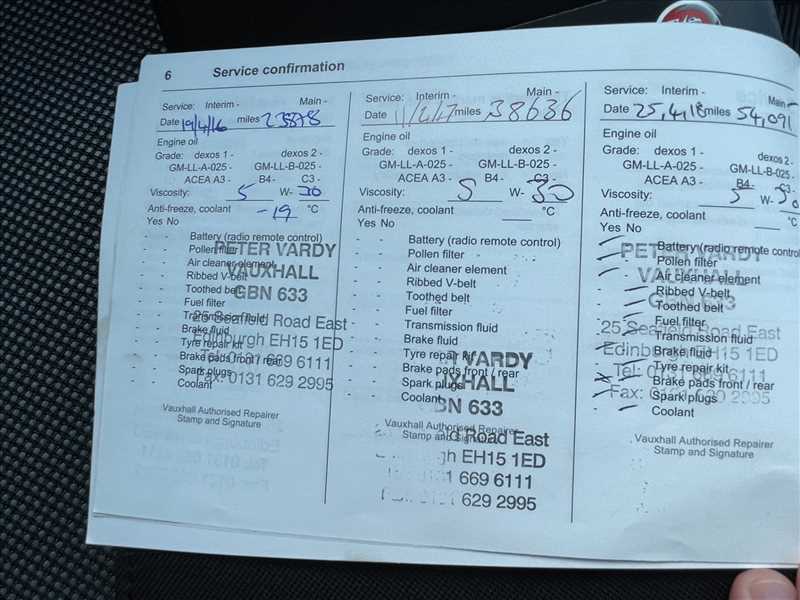 6 Service confirmation
Service: Interim - Main -
Date 19/4/16 miles 23878
Engine oil
Grade: dexos 1 - dexos 2 -
GM-LL-A-025 - GM-LL-B-025 -
ACEA A3 - B4 - C3 -
Viscosity: 5 W- 30
Anti-freeze, coolant -19 °C
Yes No
- - Battery (radio remote control)
- - Pollen filter
- - Air cleaner element
- - Ribbed V-belt
- - Toothed belt
- - Fuel filter
- - Transmission fluid
- - Brake fluid
- - Tyre repair kit
- - Brake pads front / rear
- - Spark plugs
- - Coolant
PETER VARDY
VAUXHALL
GBN 633
25 Seafield Road East
Edinburgh EH15 1ED
Tel: 0131 669 6111
Fax: 0131 629 2995
Vauxhall Authorised Repairer
Stamp and Signature
Service: Interim - Main -
Date 11/4/17 miles 38636
Engine oil
Grade: dexos 1 - dexos 2 -
GM-LL-A-025 - GM-LL-B-025 -
ACEA A3 - B4 - C3 -
Viscosity: 5 W- 30
Anti-freeze, coolant °C
Yes No
- - Battery (radio remote control)
- - Pollen filter
- - Air cleaner element
- - Ribbed V-belt
- - Toothed belt
- - Fuel filter
- - Transmission fluid
- - Brake fluid
- - Tyre repair kit
- - Brake pads front / rear
- - Spark plugs
- - Coolant
VARDY
XHALL
BN 633
Road East
gh EH15 1ED
669 6111
629 2995
Vauxhall Authorised Repairer
Stamp and Signature
Service: Interim - Main -
Date 25,4,18 miles 54,091
Engine oil
Grade: dexos 1 - dexos 2 -
GM-LL-A-025 - GM-LL-B-025 -
ACEA A3 - B4 - C3 -
Viscosity: 5 W- 30
Anti-freeze, coolant °C
Yes No
Battery (radio remote control
Pollen filter
Air cleaner element
Ribbed V-belt
Toothed belt
Fuel filter
Transmission fluid
Brake fluid
Tyre repair kit
Brake pads front / rear
Spark plugs
Coolant
PETER VARDY
VAUXHALL
GBN 633
25 Seafield Road East
Edinburgh EH15 1ED
Tel: 0131 669 6111
Fax: 0131 629 2995
Vauxhall Authorised Repairer
Stamp and Signature